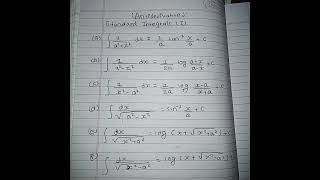 (Antiderivative)
Standard Integrals (I)
(a) ∫ 1/(a²+x²) dx = 1/a tan⁻¹ x/a + C
(b) ∫ 1/(a²-x²) dx = 1/2a log (a+x)/(a-x) + C
(c) ∫ 1/(x²-a²) dx = 1/2a log (x-a)/(x+a) + C
(d) ∫ dx/√(a²-x²) = sin⁻¹ x/a + C
(e) ∫ dx/√(x²+a²) = log (x+√x²+a²) + C
∫ dx/√(x²-a²) = log (x+√x²-a²) + C